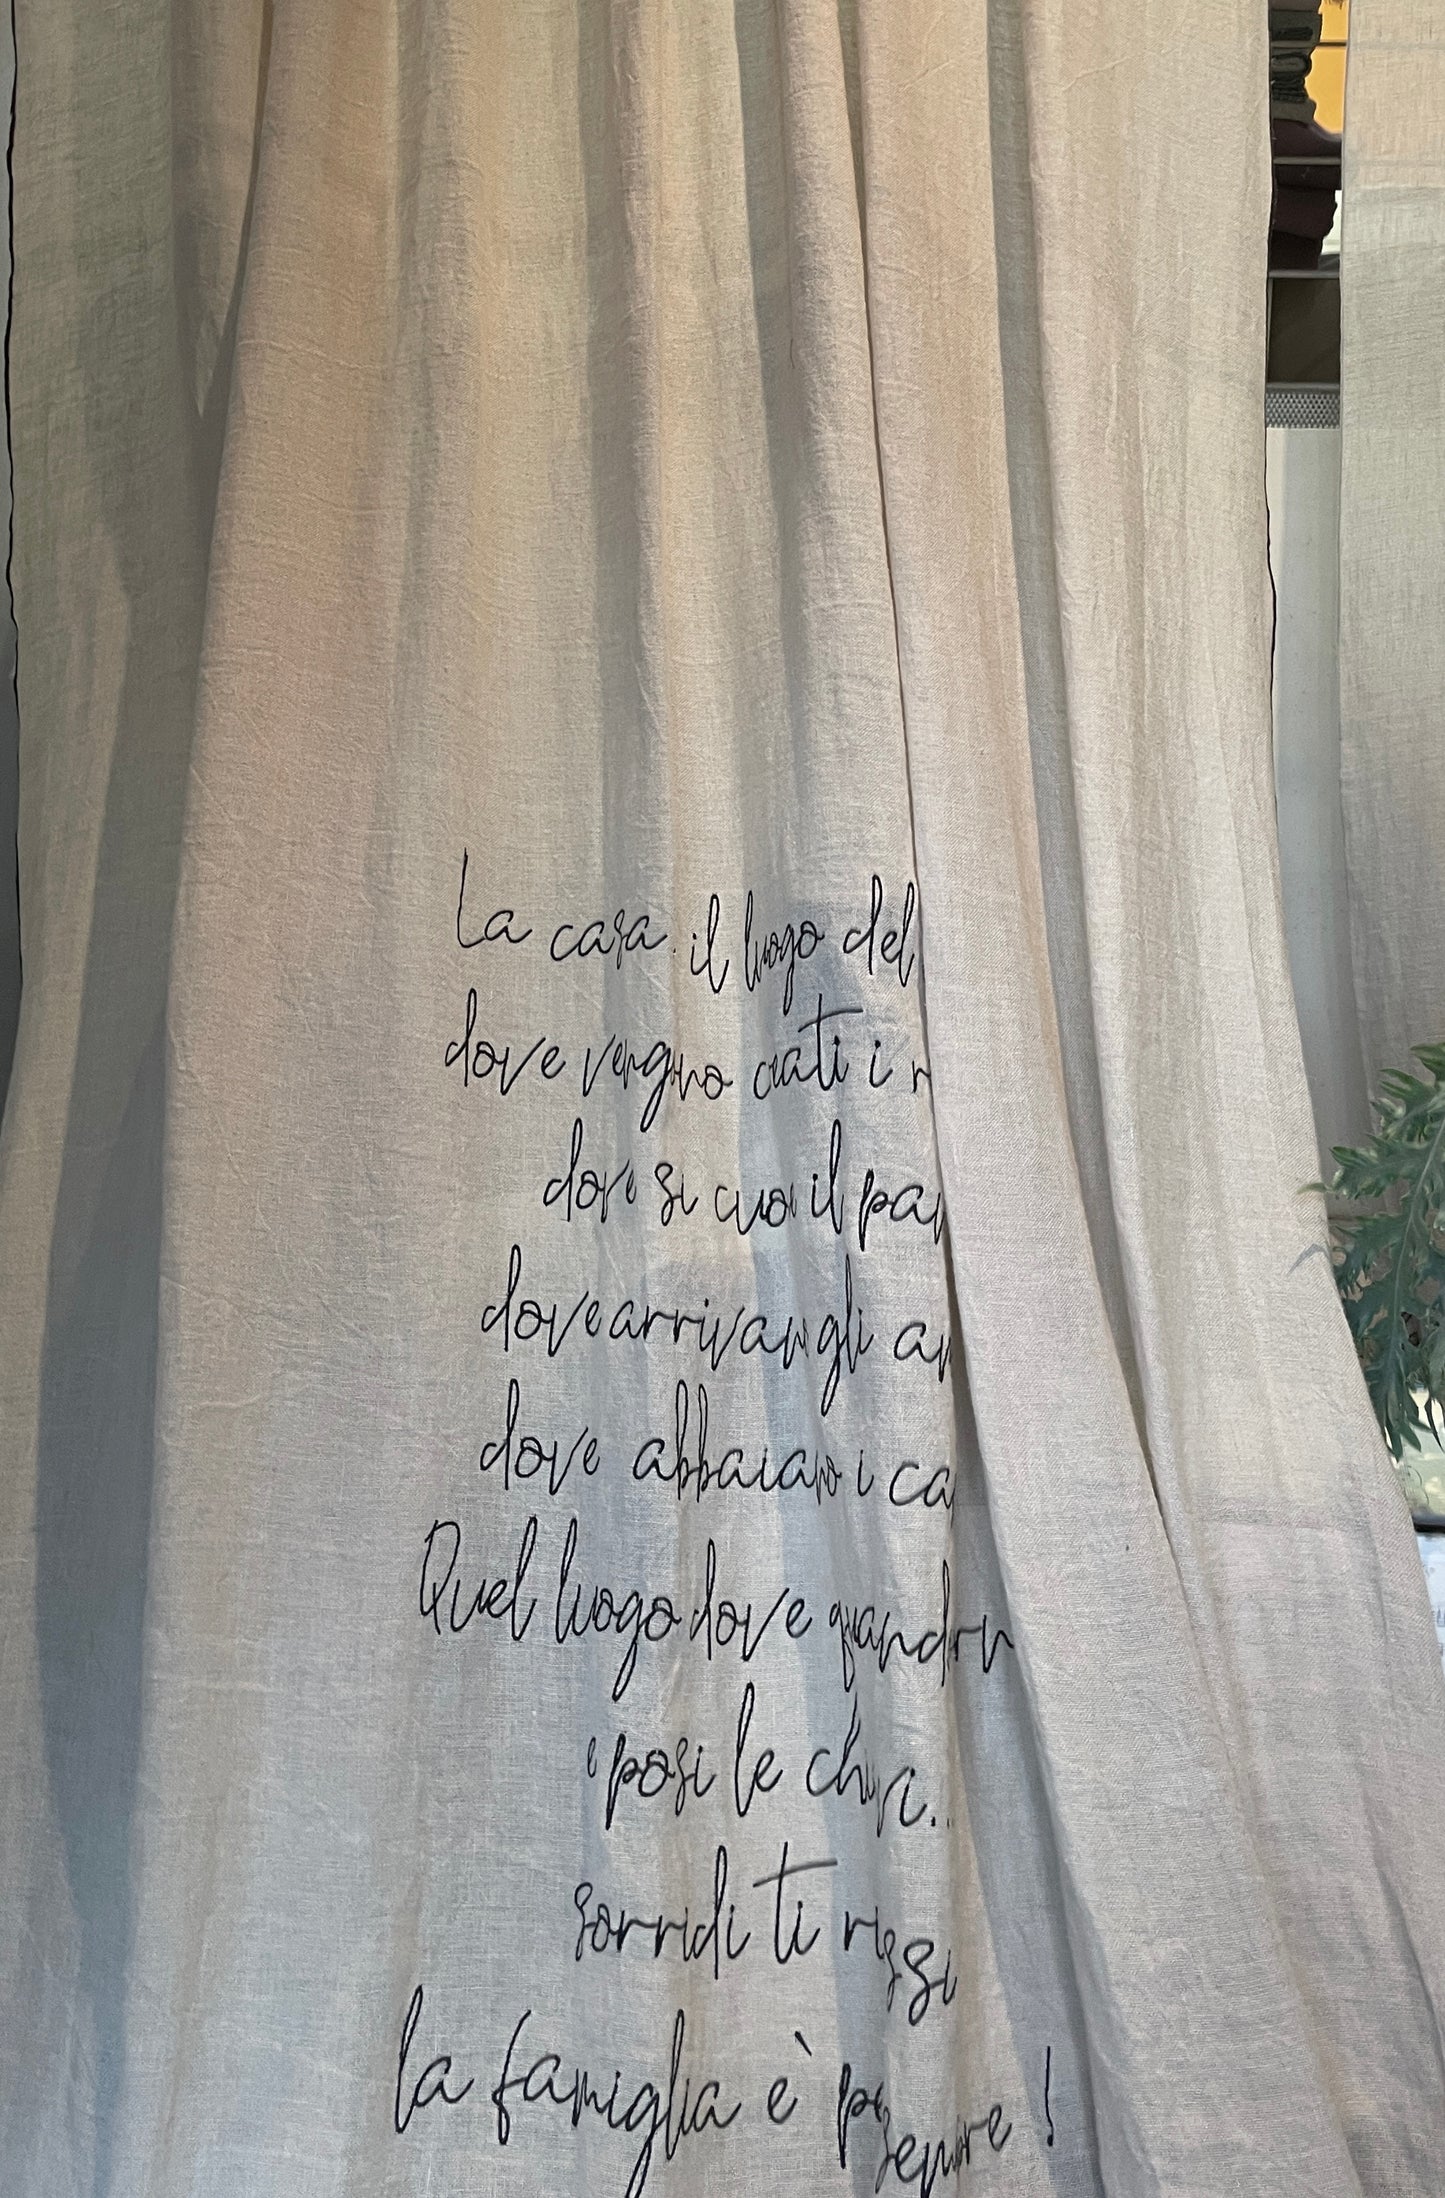 La casa il luogo del
dove vengono creati i
dove si cuoce il
dove arrivano gli
dove abbaiano i
Quel luogo dove quando
e posi le chiavi...
sorridi ti
la famiglia è per sempre!